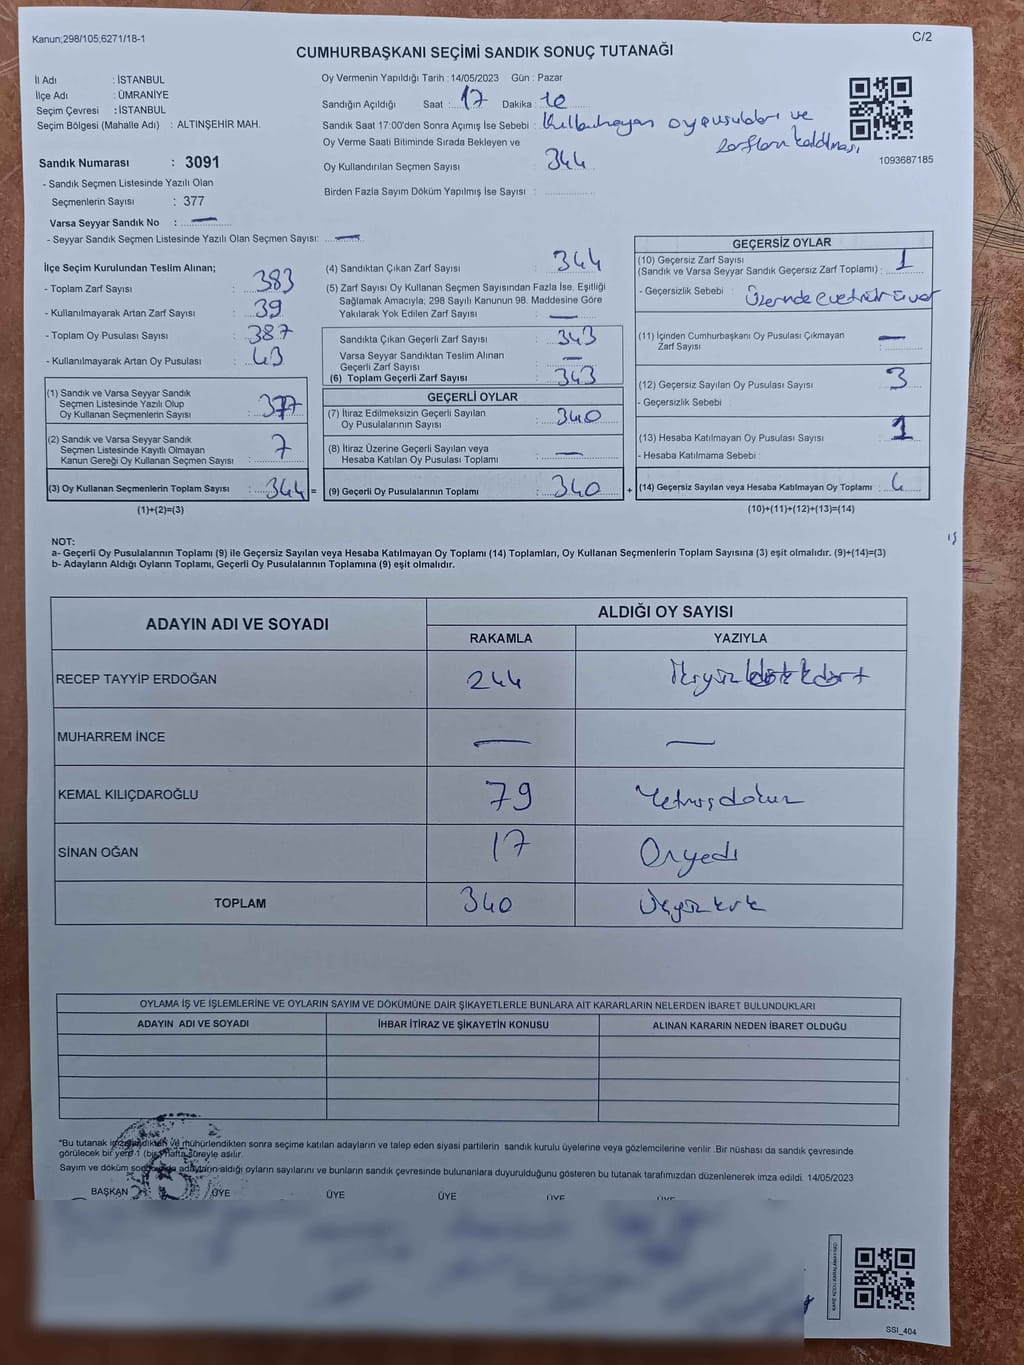 Kanun;298/105,6271/18-1
C/2
CUMHURBAŞKANI SEÇİMİ SANDIK SONUÇ TUTANAĞI
İl Adı : İSTANBUL
İlçe Adı : ÜMRANİYE
Seçim Çevresi : İSTANBUL
Seçim Bölgesi (Mahalle Adı) : ALTINŞEHİR MAH.
Sandık Numarası : 3091
- Sandık Seçmen Listesinde Yazılı Olan
Seçmenlerin Sayısı : 377
Varsa Seyyar Sandık No : —
- Seyyar Sandık Seçmen Listesinde Yazılı Olan Seçmen Sayısı: —
Oy Vermenin Yapıldığı Tarih :14/05/2023 Gün : Pazar
Sandığın Açıldığı Saat : 17 Dakika : 10
Sandık Saat 17:00'den Sonra Açımış İse Sebebi : Kullanılmayan oy pusulaları ve
zarfların kaldılması
Oy Verme Saati Bitiminde Sırada Bekleyen ve
Oy Kullandırılan Seçmen Sayısı : 344
Birden Fazla Sayım Döküm Yapılmış İse Sayısı :
1093687185
İlçe Seçim Kurulundan Teslim Alınan;
- Toplam Zarf Sayısı : 383
- Kullanılmayarak Artan Zarf Sayısı : 39
- Toplam Oy Pusulası Sayısı : 387
- Kullanılmayarak Artan Oy Pusulası : 43
(1) Sandık ve Varsa Seyyar Sandık
Seçmen Listesinde Yazılı Olup
Oy Kullanan Seçmenlerin Sayısı :
(2) Sandık ve Varsa Seyyar Sandık
Seçmen Listesinde Kayıtlı Olmayan
Kanun Gereği Oy Kullanan Seçmen Sayısı : 7
(3) Oy Kullanan Seçmenlerin Toplam Sayısı : 344 =
(1)+(2)=(3)
(4) Sandıktan Çıkan Zarf Sayısı : 344
(5) Zarf Sayısı Oy Kullanan Seçmen Sayısından Fazla İse, Eşitliği
Sağlamak Amacıyla; 298 Sayılı Kanunun 98. Maddesine Göre
Yakılarak Yok Edilen Zarf Sayısı : —
Sandıkta Çıkan Geçerli Zarf Sayısı : 343
Varsa Seyyar Sandıktan Teslim Alınan
Geçerli Zarf Sayısı : —
(6) Toplam Geçerli Zarf Sayısı : 343
GEÇERLİ OYLAR
(7) İtiraz Edilmeksizin Geçerli Sayılan
Oy Pusulalarının Sayısı : 340
(8) İtiraz Üzerine Geçerli Sayılan veya
Hesaba Katılan Oy Pusulası Toplamı : —
(9) Geçerli Oy Pusulalarının Toplamı : 340 +
GEÇERSİZ OYLAR
(10) Geçersiz Zarf Sayısı
(Sandık ve Varsa Seyyar Sandık Geçersiz Zarf Toplamı) : 1
- Geçersizlik Sebebi : Üzerinde evet mührü var
(11) İçinden Cumhurbaşkanı Oy Pusulası Çıkmayan
Zarf Sayısı : —
(12) Geçersiz Sayılan Oy Pusulası Sayısı : 3
- Geçersizlik Sebebi :
(13) Hesaba Katılmayan Oy Pusulası Sayısı : 1
- Hesaba Katılmama Sebebi :
(14) Geçersiz Sayılan veya Hesaba Katılmayan Oy Toplamı : 4
(10)+(11)+(12)+(13)=(14)
NOT:
a- Geçerli Oy Pusulalarının Toplamı (9) ile Geçersiz Sayılan veya Hesaba Katılmayan Oy Toplamı (14) Toplamları, Oy Kullanan Seçmenlerin Toplam Sayısına (3) eşit olmalıdır. (9)+(14)=(3)
b- Adayların Aldığı Oyların Toplamı, Geçerli Oy Pusulalarının Toplamına (9) eşit olmalıdır.
ADAYIN ADI VE SOYADI ALDIĞI OY SAYISI
RAKAMLA YAZIYLA
RECEP TAYYİP ERDOĞAN 244 İkiyüz kırk dört
MUHARREM İNCE — —
KEMAL KILIÇDAROĞLU 79 Yetmişdokuz
SİNAN OĞAN 17 Onyedi
TOPLAM 340 Üçyüzkırk
OYLAMA İŞ VE İŞLEMLERİNE VE OYLARIN SAYIM VE DÖKÜMÜNE DAİR ŞİKAYETLERLE BUNLARA AİT KARARLARIN NELERDEN İBARET BULUNDUKLARI
ADAYIN ADI VE SOYADI İHBAR İTİRAZ VE ŞİKAYETİN KONUSU ALINAN KARARIN NEDEN İBARET OLDUĞU
*Bu tutanak imzalandıktan ve mühürlendikten sonra seçime katılan adayların ve talep eden siyasi partilerin sandık kurulu üyelerine veya gözlemcilerine verilir .Bir nüshası da sandık çevresinde
görülecek bir yerd 1 (bir) hafta süreyle asılır.
Sayım ve döküm adayların aldığı oyların sayılarını ve bunların sandık çevresinde bulunanlara duyurulduğunu gösteren bu tutanak tarafımızdan düzenlenerek imza edildi. 14/05/2023
BAŞKAN ÜYE ÜYE ÜYE ÜYE
SSI_404